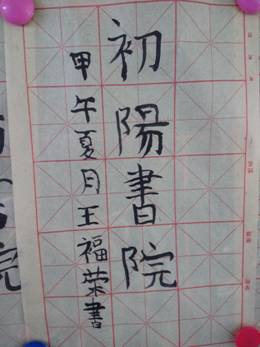 初陽書院
甲午夏月王福榮書